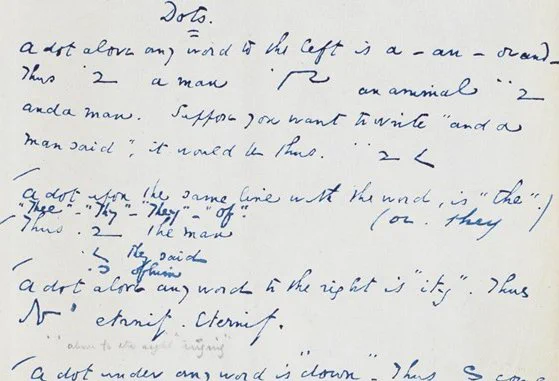 Dots.
A dot above any word to the left is a - an - or and -
Thus a man an animal
and a man. Suppose you want to write "and a
man said", it would be thus.
A dot upon the same line with the word, is "the".
"Thee" - "Thy" - "They" - "of". (or. they)
Thus . the man
they said
of him
A dot above any word to the right is "ity". Thus
eternit. Eternity.
"above to the right"
A dot under any word is "down". Thus